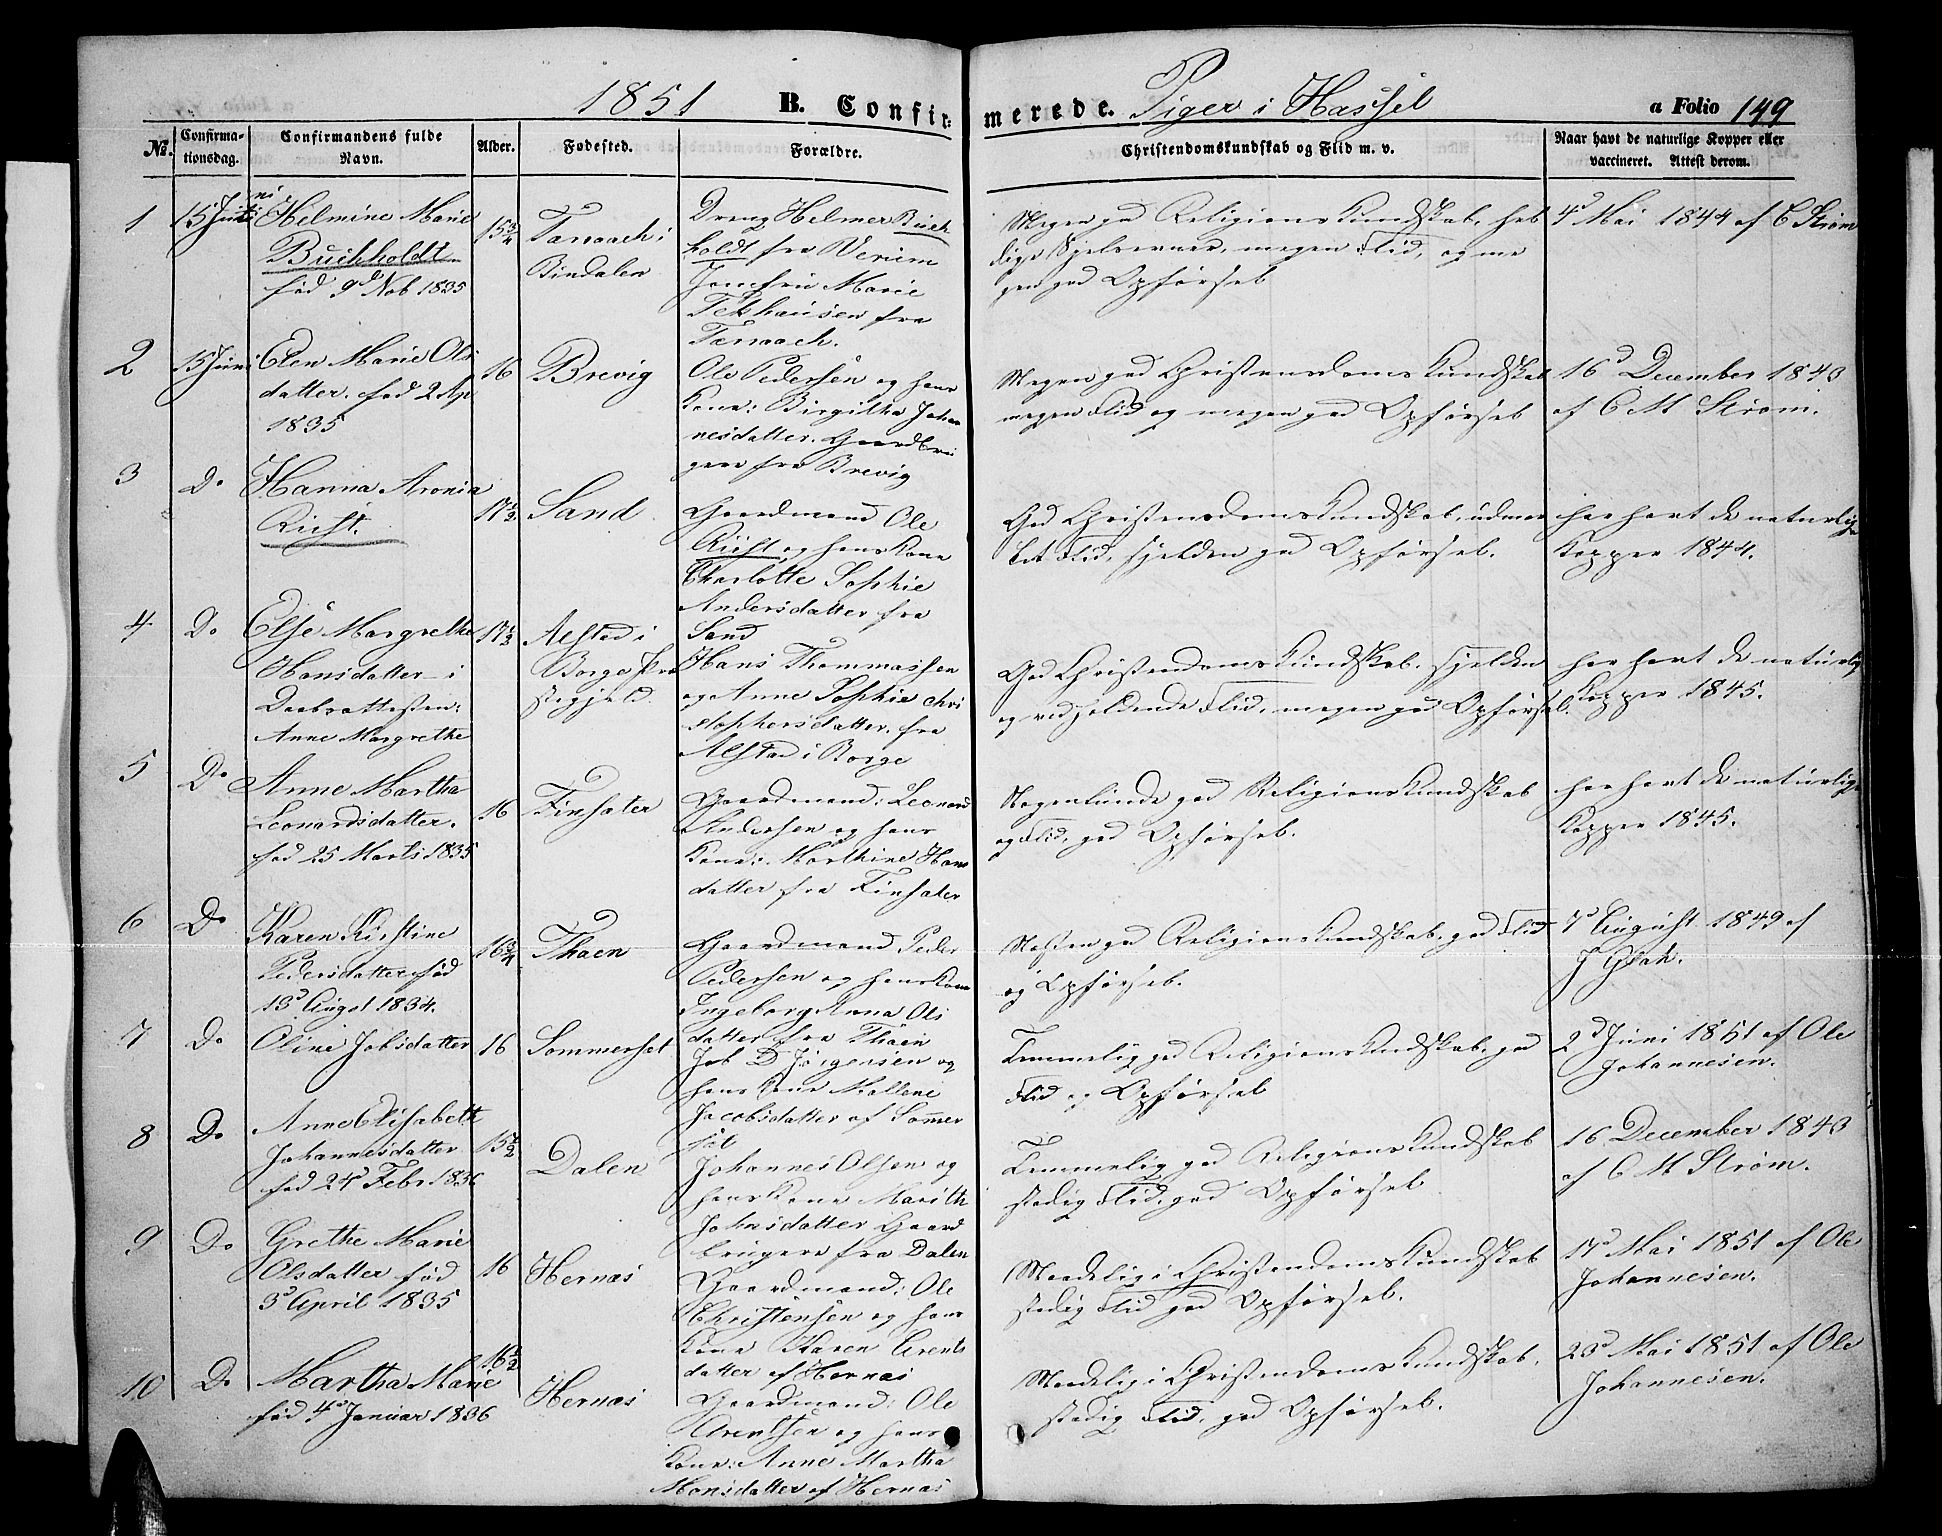 1851 B. Confirmerede. Piger i Hassel a Folio 149
№ Confirmationsdag. Confirmandens fulde Navn. Alder. Fødested. Forældre. Christendomskundskab og Flid m. v. Naar havt de naturlige Kopper eller vaccineret. Attest derom.
1 15 Juni Helmine Marie
Buchholdt
fød 9d Nob 1835
15 3/4
i
Bindalen
Dreng Helmer Buch
holdt fra
Jomfru Marie
fra
Meget god Religions Kundskab, hel
dige Sjelsevner, megen Flid, og me
gen god Opførsel
4d Mai 1844 af C Strøm
2 15 Juni Elen Marie Ols
datter. fød 2 Ap
1835
16
Brevig
Ole Pedersen og hans
Kone: Birgitha Johan
nesdatter. Gaardbru
gere fra Brevig
Megen god Christendoms Kundskab
megen Flid og megen god Opførsel
16d December 1843
af C M Strøm.
3 Do Hanna Aronia
Quist.
17 1/2
Sand
Gaardmand Ole
Quist og hans Kone
Charlotte Sophie
Andersdatter fra
Sand
God Christendoms Kundskab, udmær
ket Flid, sjelden god Opførsel.
har havt de naturlige
Kopper 1844.
4 Do Else Margrethe
Hansdatter i
Daabsattesten:
Anne Margrethe
17 1/2
Alstad i
Borge Præ
stegjeld
Hans Thommassen
og Anne Sophie Chri
stophersdatter. fra
Alstad i Borge
God Christendoms Kundskab. sjelden
og vedholdende Flid, megen god Opførsel.
har havt de naturlig
Kopper 1845.
5 Do Anne Martha
Leonardsdatter.
fød 25 Marts 1835
16
Finsæter
Gaardmand: Leonard
Andersen og hans
Kone: Marthine Hans
datter fra Finsæter
Nogenlunde god Religions Kundskab
og Flid, god Opførsel.
har havt de naturlige
Kopper 1845.
6 Do Karen Kirstine
Pedersdatter fød
13d Augst 1834.
16 3/4
Thaen
Gaardmand Peder
Pedersen og hans Kone
Ingeborg Anna Ols
datter fra Thaen
Næsten god Religions Kundskab, god Flid
og Opførsel.
7d August 1849 af
J Gjæh.
7 Do Oline Jobsdatter
16
Sommerset
Job D Jörgensen og
hans Kone Mallene
Jacobsdatter af Sommer
sæt
Temmelig god Religions Kundskab, god
Flid og Opførsel
2d Juni 1851 af Ole
Johannesen.
8 Do Anne Elisabeth
Johannesdatter
fød 24d Febr 1836
15 1/2
Dalen
Johannes Olsen og
hans Kone Marith
Johnsdatter Gaard
brugere fra Dalen
Temmelig god Religions Kundskab
stadig Flid, god Opførsel
16 December 1843
af C M Strøm.
9 Do Grethe Marie
Olsdatter fød
3d April 1835
16
Hernæs
Gaardmand: Ole
Christensen og hans
Kone Karen Arents
datter af Hernæs
Maadelig i Christendoms Kundskab
stadig Flid god Opførsel.
17d Mai 1851 af Ole
Johannesen.
10 Do Martha Marie
fød 4d Januar 1836
16 1/2
Hernæs
Gaardmand: Ole
Arentsen og hans
Kone: Anne Martha
Monsdatter af Hernæs
Maadelig i Christendoms Kundskab.
stadig Flid, god Opførsel.
23d Mai 1851 af Ole
Johannesen.